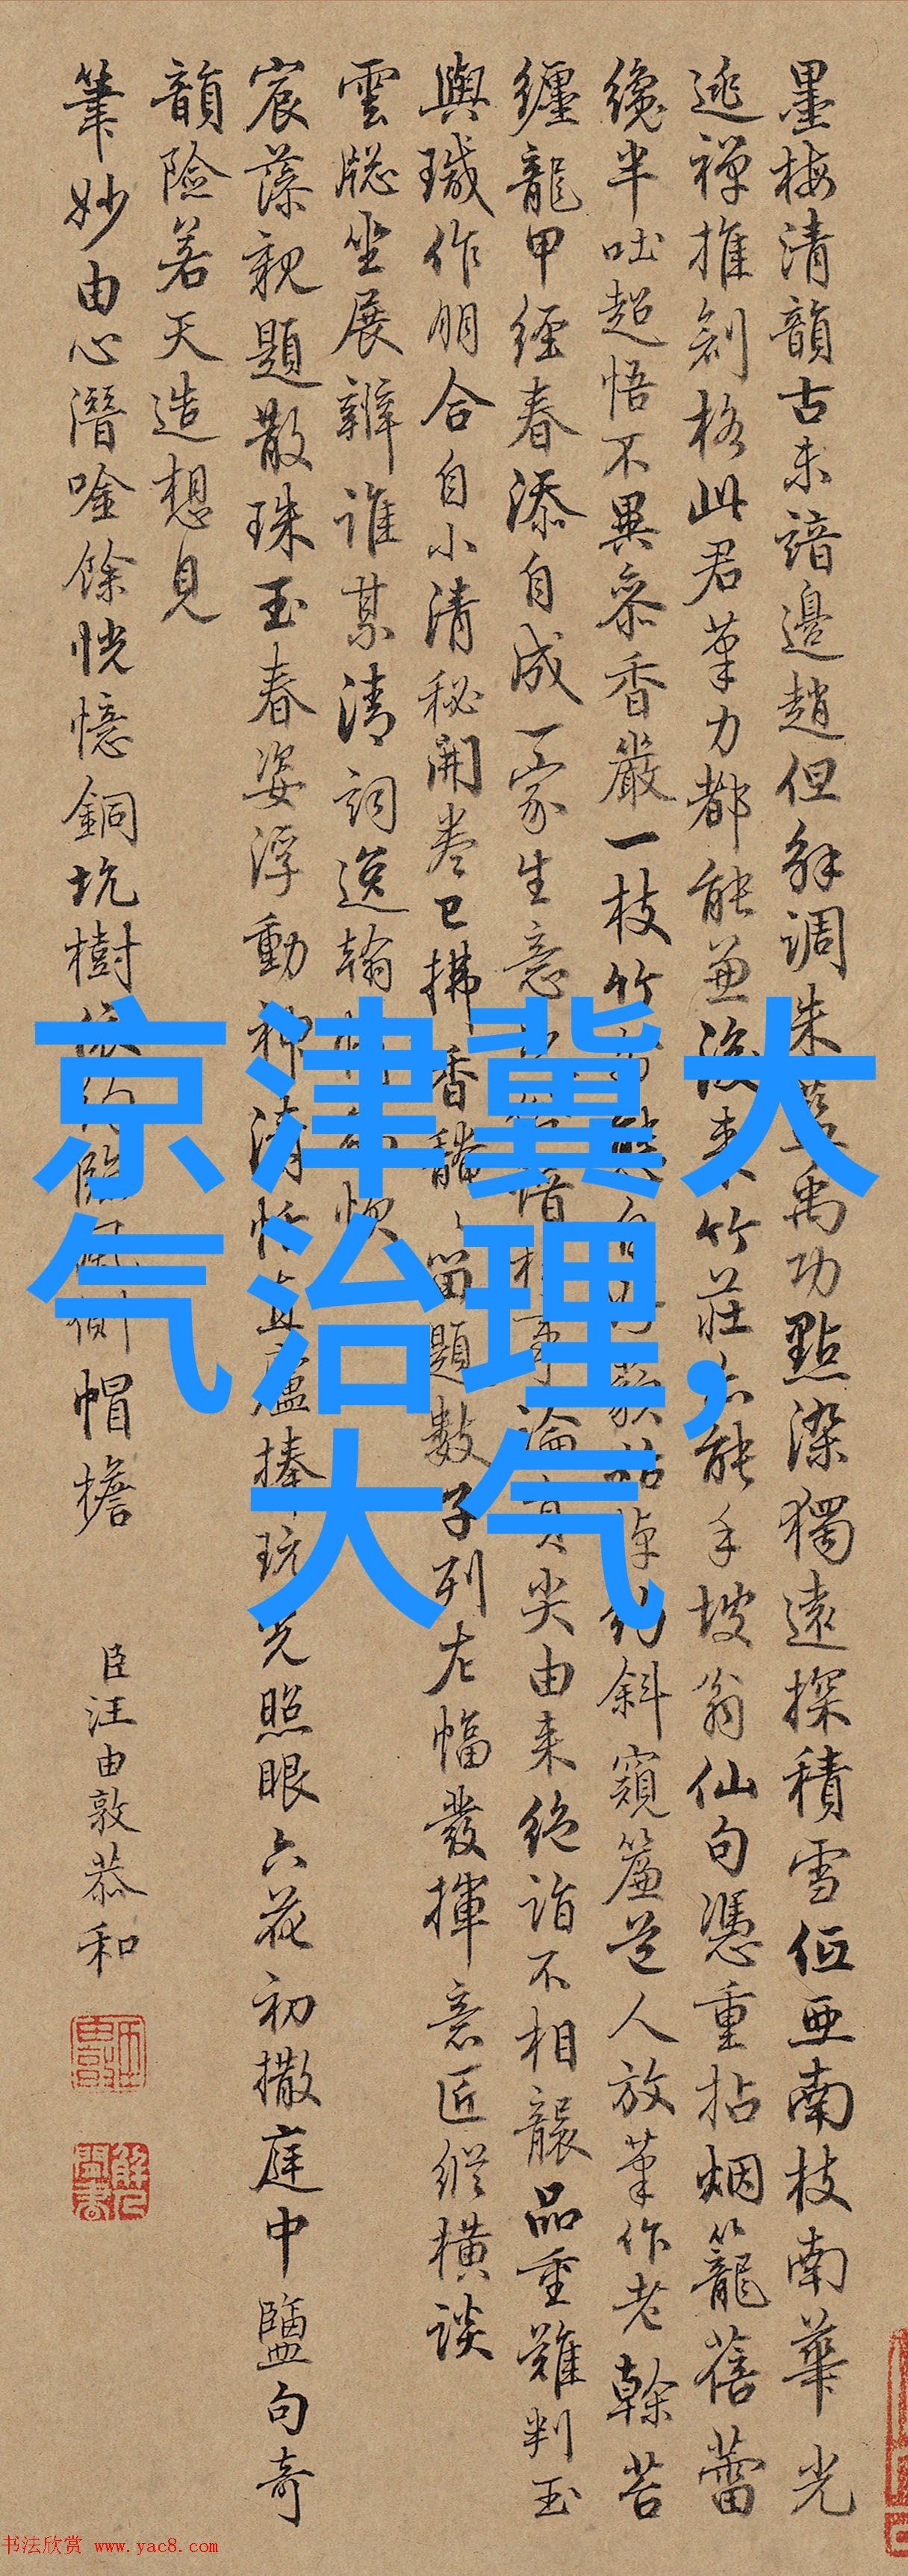 墨梅清韻古未諳邊趙但解調朱藍禹功點染獨遠探積雪低亞南枝南華光
逃禪推創格此君筆力都能兼後來竹莊亦能手坡翁仙句憑重拈烟籠蓓蕾
纔半吐超悟不異參香嚴一枝竹斜窺簾道人放筆作老幹苦
纏龍甲經春添自成一家生意尖由來絶詣不相襲品重難判玉
與瑊作朋合自小清秘開卷已拂香馣馣留題數子列左幅發揮意匠縱橫談
雲牕坐展辨誰某清詞逸翰
宸藻親題散珠玉春姿浮動神清恬直廬捧玩光照眼六花初撒庭中鹽句奇
韻險若天造想見
筆妙由心潛唫餘恍憶銅坑樹側帽檐
臣汪由敦恭和
京津冀大
气治理,
大气
书法欣赏 www.yac8.com